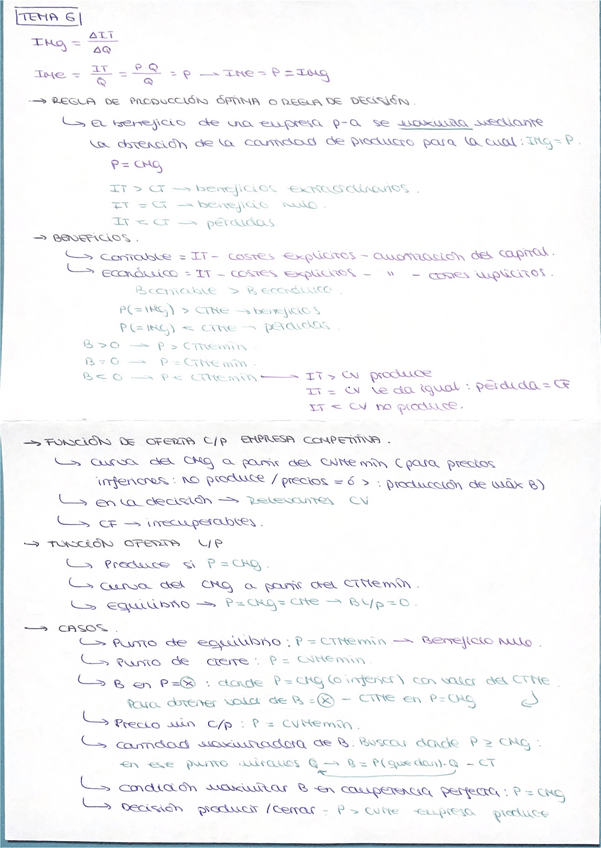 TEMA 6
IMg = ΔIT / ΔQ
IMe = IT / Q = P Q / Q = P → IMe = P = IMg
→ REGLA DE PRODUCCIÓN ÓPTIMA O REGLA DE DECISIÓN.
↳ El beneficio de una empresa p-a se maximiza mediante
la obtención de la cantidad de producto para la cual: IMg = P.
P = CMg
IT > CT → beneficios extraordinarios.
IT = CT → beneficio nulo.
IT < CT → pérdidas.
→ BENEFICIOS.
↳ Contable = IT - costes explícitos - amortización del capital.
↳ Económico = IT - costes explícitos - " - costes implícitos.
Bcontable > Beconómico.
P(=IMg) > CTMe → beneficios
P(=IMg) < CTMe → pérdidas.
B > 0 → P > CTMemín
B = 0 → P = CTMemín.
B < 0 → P < CTMemín → IT > CV produce
IT = CV le da igual: pérdida = CF
IT < CV no produce.
→ FUNCIÓN DE OFERTA C/P EMPRESA COMPETITIVA.
↳ Curva del CMg a partir del CVMemín (para precios
inferiores: no produce / precios = ó > : producción de máx B)
↳ en la decisión → Relevantes CV
↳ CF → irrecuperables.
→ FUNCIÓN OFERTA L/P
↳ Produce si P = CMg.
↳ Curva del CMg a partir del CTMemín.
↳ Equilibrio → P = CMg = CMe → B L/p = 0.
→ CASOS.
↳ Punto de equilibrio: P = CTMemín → Beneficio nulo.
↳ Punto de cierre: P = CVMemín.
↳ B en P = ⓧ : donde P = CMg (o inferior) con valor del CTMe.
Para obtener valor de B = ⓧ - CTMe en P = CMg
↳ Precio min c/p: P = CVMemín.
↳ Cantidad maximizadora de B. Buscar donde P ≥ CMg:
en ese punto miramos Q → B = P(que dan)·Q - CT
↳ Condición maximizar B en competencia perfecta: P = CMg
↳ Decisión producir/cerrar - P > CVMe empresa produce